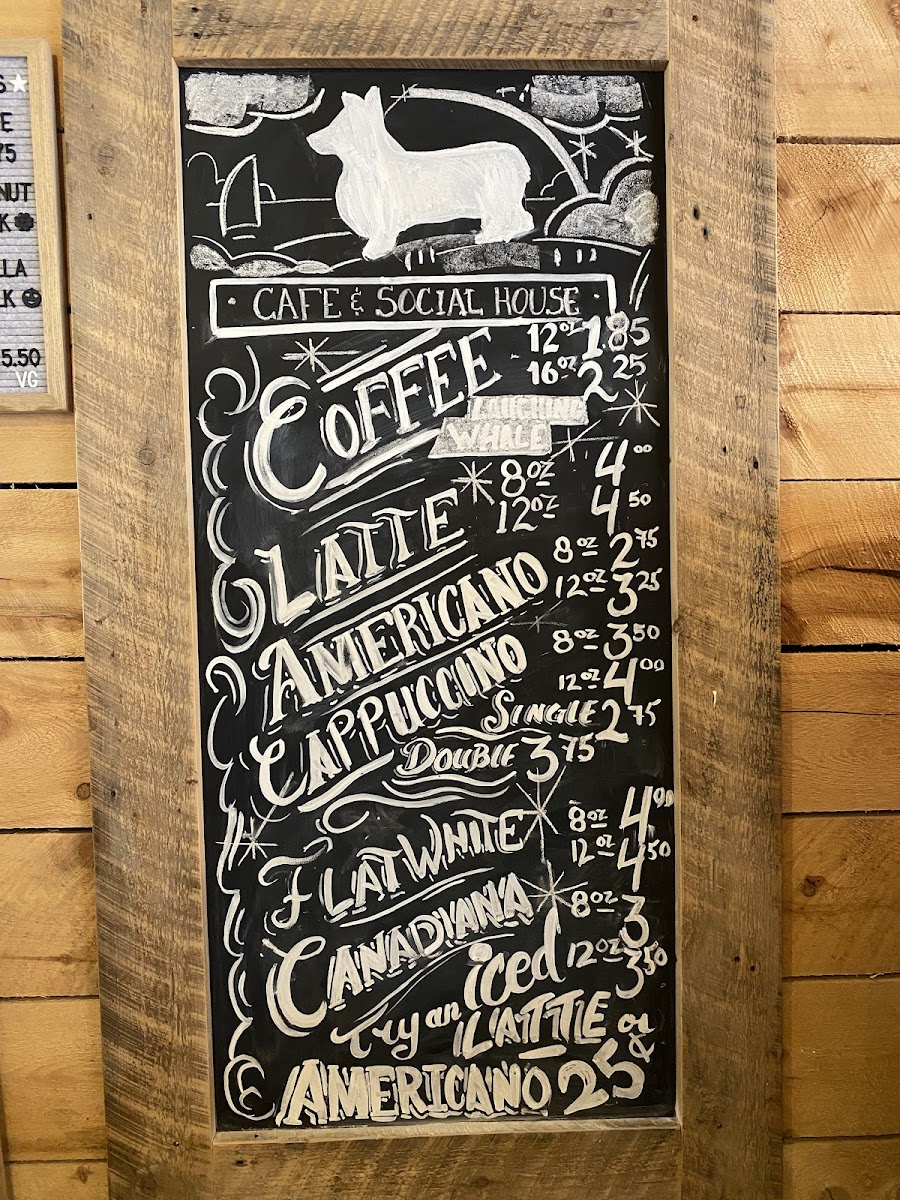 S★
E
75
NUT
K
LLA
LK
5.50
VG
CAFE & SOCIAL HOUSE
COFFEE 12oz 1.85
16oz 2 25
LAUGHING
WHALE
LATTE 8oz 4 00
12oz 4 50
AMERICANO 8oz 2 75
12oz 3 25
CAPPUCCINO 8oz 3 50
12oz 4 00
SINGLE 2 75
DOUBLE 3 75
FLATWHITE 8oz 4 00
12oz 4 50
CANADIANA 8oz 3
12oz 3 50
try an iced
LATTE or
AMERICANO 25